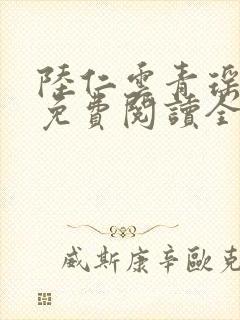 陸仁雲青瑶
免費閱讀全
威斯康辛歐克